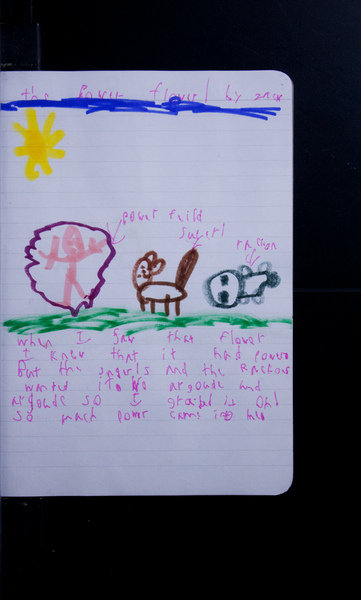 the power flower! by
power feild
sqwerl
rackon
when I saw that flower
I knew that it had power
but the sqwerls and the Rackons
wanted it. We argoude and
argoude so I grabed it Oh!
So much power came into me